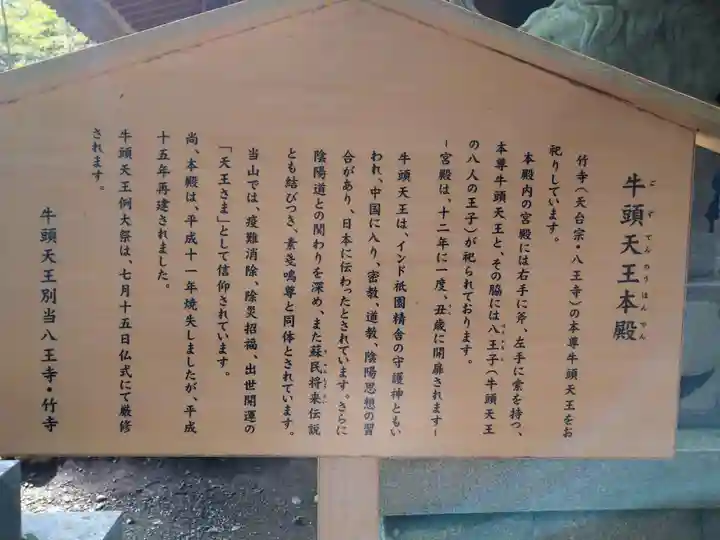 牛頭天王本殿
ごずてんのうほんでん
竹寺(天台宗・八王寺)の本尊牛頭天王をお
祀りしています。
本殿内の宮殿には右手に斧、左手に索を持つ、
本尊牛頭天王と、その脇には八王子(牛頭天王
の八人の王子)が祀られております。
ー宮殿は、十二年に一度、丑歳に開扉されますー
牛頭天王は、インド祇園精舎の守護神ともい
われ、中国に入り、密教、道教、陰陽思想の習
合があり、日本に伝わったとされています。さらに
陰陽道との関わりを深め、また蘇民将来伝説
とも結びつき、素戔嗚尊と同体とされています。
当山では、疫難消除、除災招福、出世開運の
「天王さま」として信仰されています。
尚、本殿は、平成十一年焼失しましたが、平成
十五年再建されました。
牛頭天王例大祭は、七月十五日仏式にて厳修
されます。
牛頭天王別当八王寺・竹寺